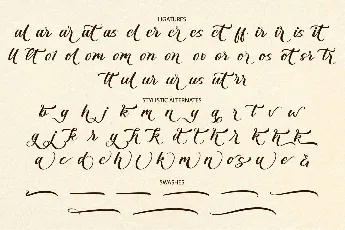 LIGATURES
al ar ar at as el er er es et ff ir ir is it
ll lt ol ol om om on on oo or or os ot sr tr
tt ul ur ur us ut rr
STYLISTIC ALTERNATES
b g h j k m n y q r t v w
g j f k r y h k d t t h r k h k
a c d e h l k m n o s u e &
SWASHES